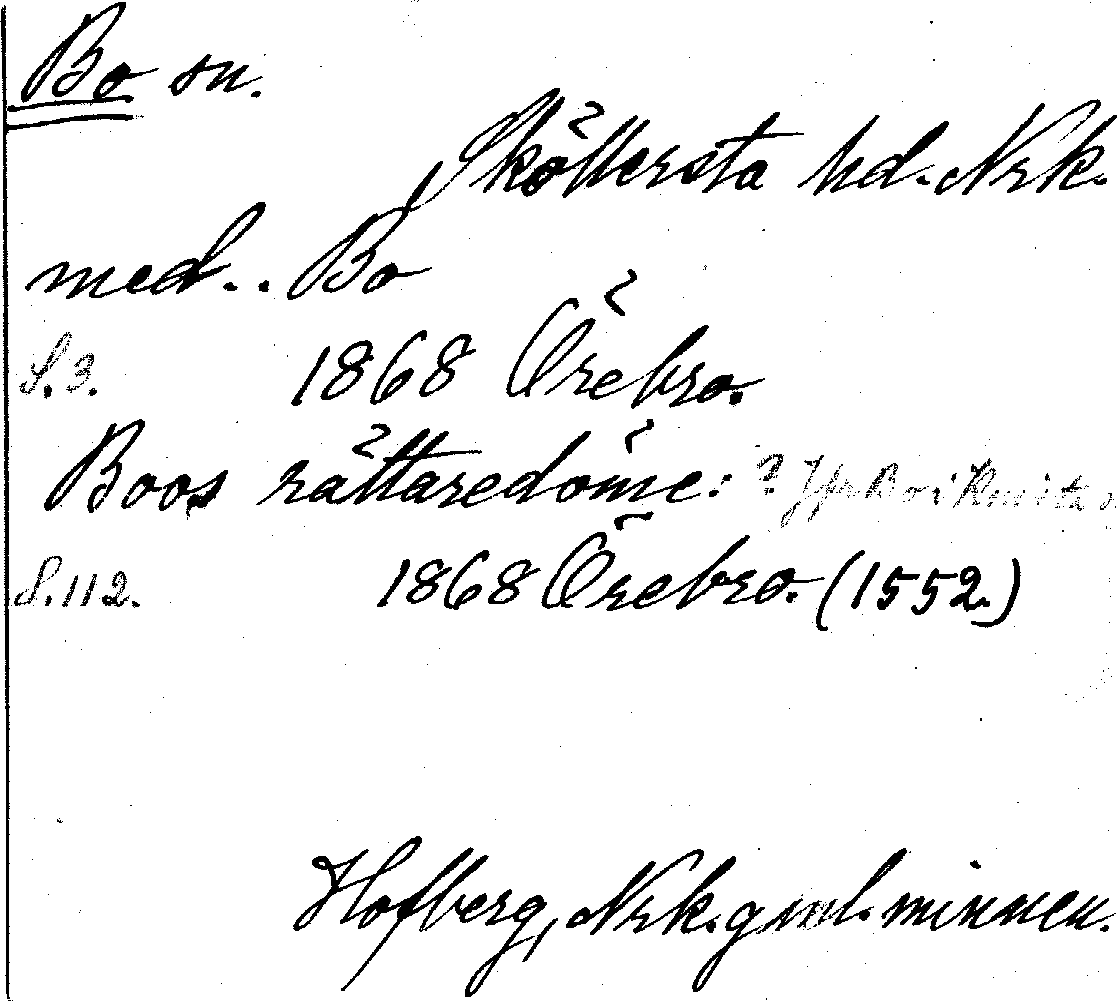 Bo sn.
Sköllersta hd. Nrk.
med.. Bo
S. 3. 1868 Örebro.
Boos rättaredöme: ? Jfr Bo i
S. 112. 1868 Örebro. (1552.)
Hofberg, Nrk. gml. minnen.